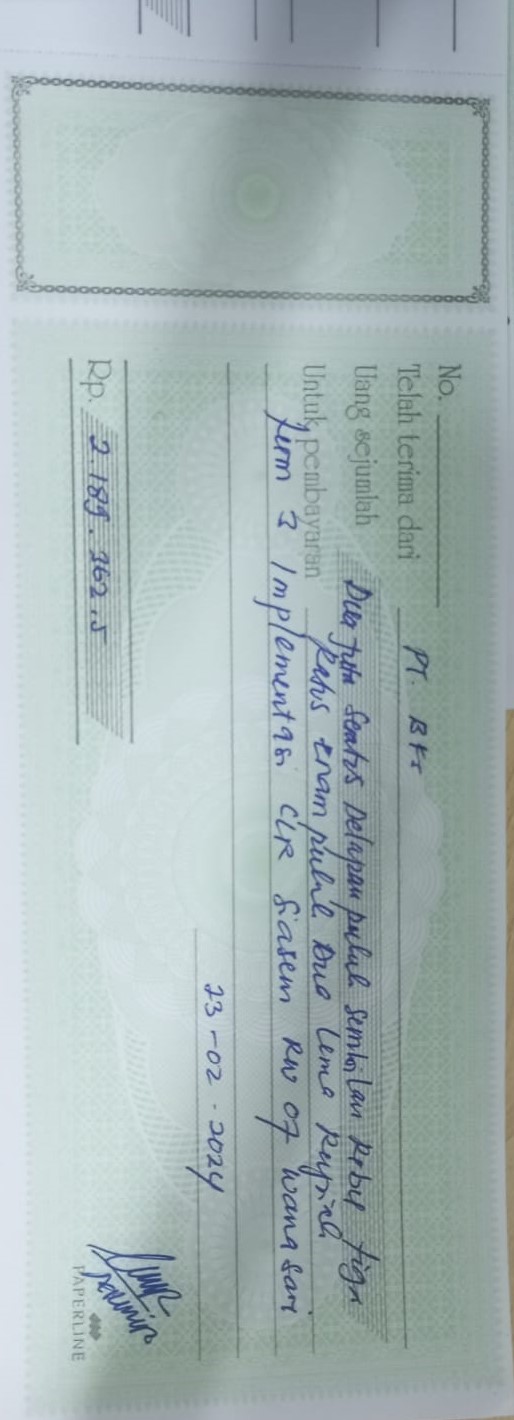 No.
Telah terima dari PT. BKS
Uang sejumlah Dua juta Seratus Delapan puluh sembilan Ribu tiga
Untuk pembayaran Ratus enam puluh Dua Lima Rupiah
term 3 Implementasi CLR Siasem RW 07 Wanasari
23-02-2024
Rp. 2.189.362,5
PAPERLINE